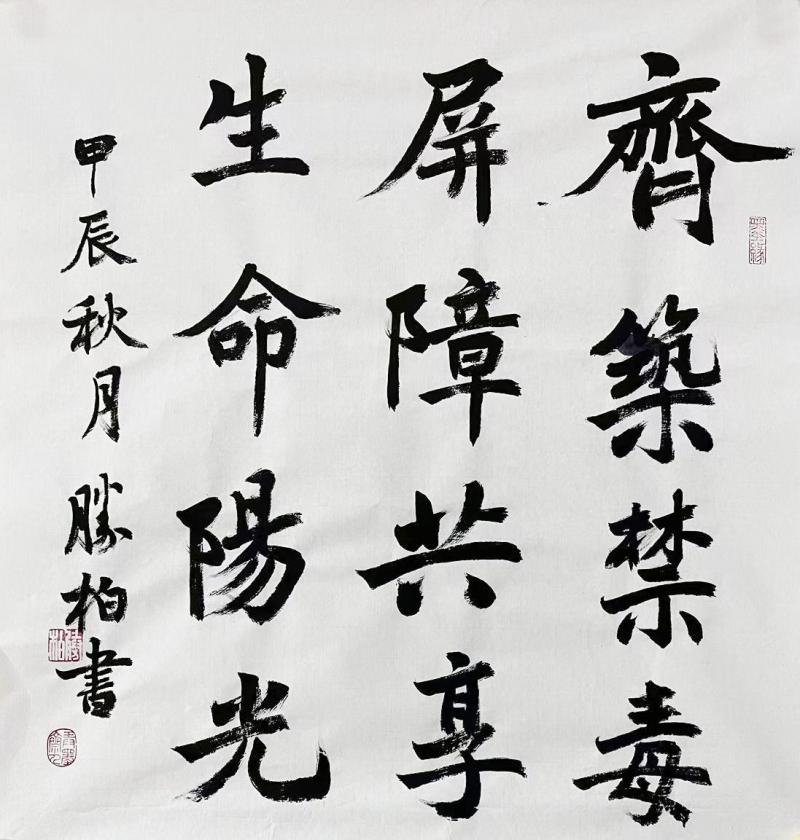 齊築禁毒
屏障共享
生命陽光
甲辰秋月勝柏書